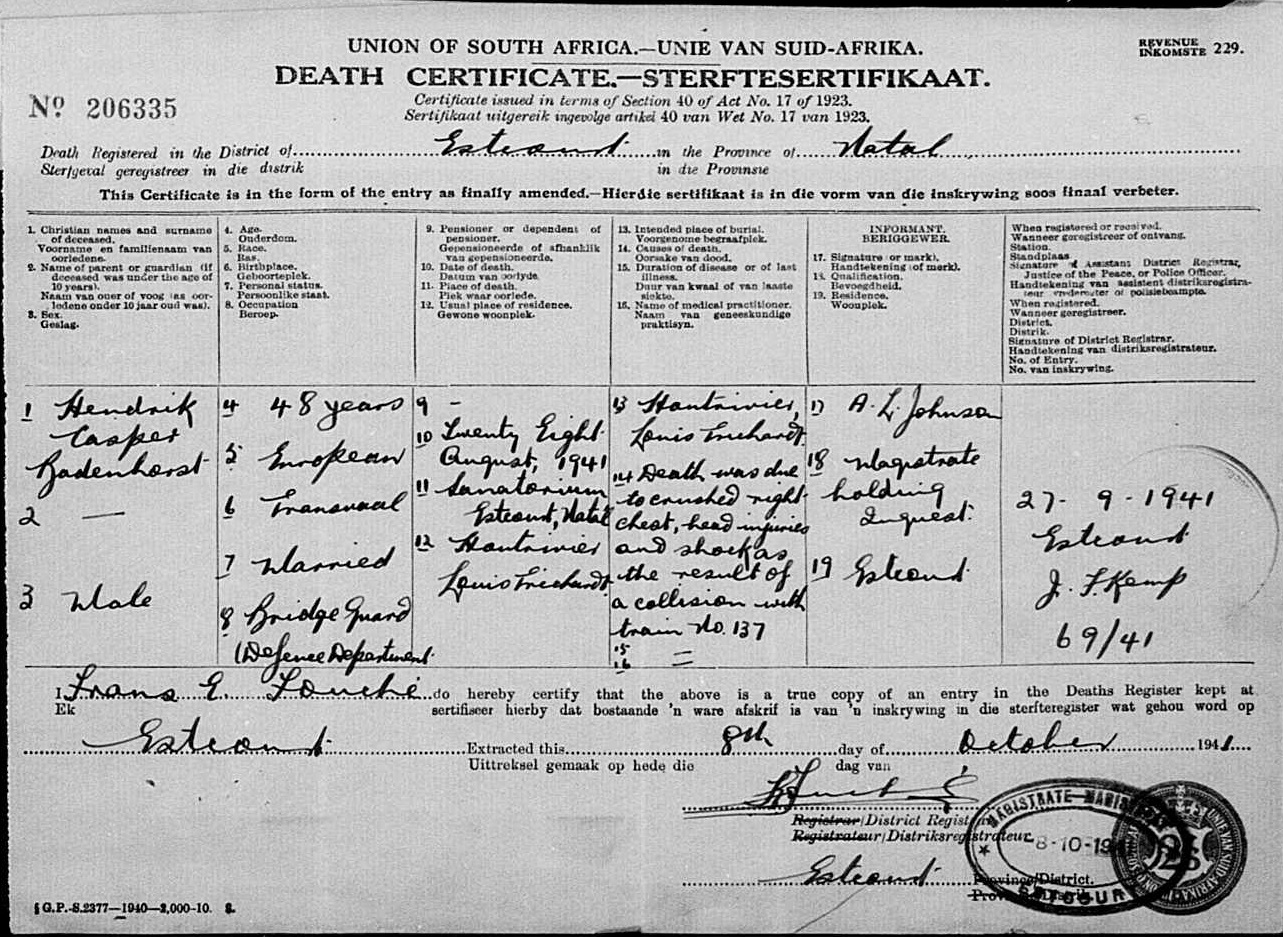 UNION OF SOUTH AFRICA.—UNIE VAN SUID-AFRIKA.
REVENUE
INKOMSTE 229.
DEATH CERTIFICATE.—STERFTESERTIFIKAAT.
Nº 206335
Certificate issued in terms of Section 40 of Act No. 17 of 1923.
Sertifikaat uitgereik ingevolge artikel 40 van Wet No. 17 van 1923.
Death Registered in the District of Estcourt in the Province of Natal
Sterfgeval geregistreer in die distrik in die Provinsie
This Certificate is in the form of the entry as finally amended.—Hierdie sertifikaat is in die vorm van die inskrywing soos finaal verbeter.
1. Christian names and surname
of deceased.
Voorname en familienaam van
oorledene.
2. Name of parent or guardian (if
deceased was under the age of
10 years).
Naam van ouer of voog (as oor-
ledene onder 10 jaar oud was).
3. Sex.
Geslag.
4. Age.
Ouderdom.
5. Race.
Ras.
6. Birthplace.
Geboorteplek.
7. Personal status.
Persoonlike staat.
8. Occupation
Beroep.
9. Pensioner or dependent of
pensioner.
Gepensioneerde of afhanklik
van gepensioneerde.
10. Date of death.
Datum van oorlyde.
11. Place of death.
Plek waar oorlede.
12. Usual place of residence.
Gewone woonplek.
13. Intended place of burial.
Voorgenome begraafplek.
14. Causes of death.
Oorsake van dood.
15. Duration of disease or of last
illness.
Duur van kwaal of van laaste
siekte.
16. Name of medical practitioner.
Naam van geneeskundige
praktisyn.
INFORMANT.
BERIGGEWER.
17. Signature (or mark).
Handtekening (of merk).
18. Qualification.
Bevoegdheid.
19. Residence.
Woonplek.
When registered or received.
Wanneer geregistreer of ontvang.
Station.
Standplaas
Signature of Assistant District Registrar,
Justice of the Peace, or Police Officer.
Handtekening van assistent distriksregistra-
teur, vrederegter of polisiebeampte.
When registered.
Wanneer geregistreer.
District.
Distrik.
Signature of District Registrar.
Handtekening van distriksregistrateur.
No. of Entry.
No. van inskrywing.
1 Hendrik
Casper
Badenhorst
2 —
3 Male
4 48 years
5 European
6 Transvaal
7 Married
8 Bridge Guard
(Defence Department
9 -
10 Twenty Eight
August, 1941
11 Sanatorium
Estcourt, Natal
12 Houtrivier
Louis Trichardt
13 Houtrivier,
Louis Trichardt
14 Death was due
to crushed right
chest, head injuries
and shock as
the result of
a collision with
train No. 137
15
16 =
17 A. L. Johnson
18 Magistrate
holding
Inquest.
19 Estcourt
27 - 9 - 1941
Estcourt
J. F. Kemp
69/41
I Frans E. Fouché do hereby certify that the above is a true copy of an entry in the Deaths Register kept at
Ek sertifiseer hierby dat bostaande 'n ware afskrif is van 'n inskrywing in die sterfteregister wat gehou word op
Estcourt Extracted this 8th day of October 1941
Uittreksel gemaak op hede die dag van
Registrar/District Registrar
Registrateur/Distriksregistrateur.
Estcourt Province/District.
MAGISTRATE
8-10-1941
ESTCOURT
§ G.P.-S.2377—1940—2,000-10. S.